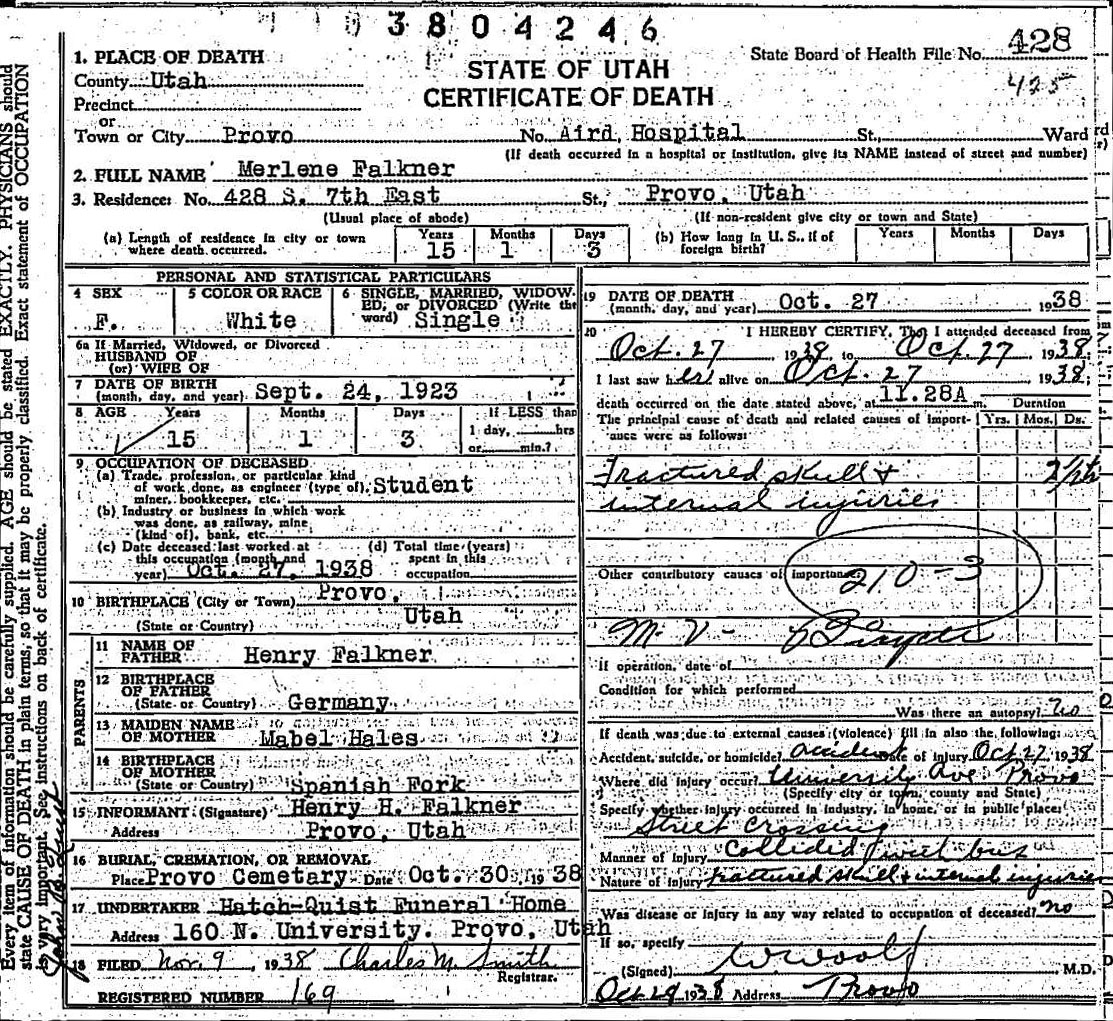 3804246
State Board of Health File No. 428
425
STATE OF UTAH
CERTIFICATE OF DEATH
1. PLACE OF DEATH
County Utah
Precinct
or
Town or City Provo No. Aird Hospital St. Ward
(If death occurred in a hospital or institution, give its NAME instead of street and number)
2. FULL NAME Merlene Falkner
3. Residence: No. 428 S. 7th East St., Provo, Utah
(Usual place of abode) (If non-resident give city or town and State)
(a) Length of residence in city or town where death occurred. Years 15 Months 1 Days 3
(b) How long in U. S., if of foreign birth? Years Months Days
PERSONAL AND STATISTICAL PARTICULARS
4 SEX F.
5 COLOR OR RACE White
6 SINGLE, MARRIED, WIDOWED, or DIVORCED (Write the word) Single
6a If Married, Widowed, or Divorced
HUSBAND OF
(or) WIFE OF
7 DATE OF BIRTH
(month, day, and year) Sept. 24, 1923
8 AGE Years 15 Months 1 Days 3 If LESS than 1 day, hrs or min.?
9 OCCUPATION OF DECEASED
(a) Trade, profession, or particular kind
of work done, as engineer (type of), Student
miner, bookkeeper, etc.
(b) Industry or business in which work
was done, as railway, mine
(kind of), bank, etc.
(c) Date deceased last worked at
this occupation (month and
year) Oct. 27, 1938
(d) Total time (years)
spent in this
occupation
10 BIRTHPLACE (City or Town) Provo,
(State or Country) Utah
PARENTS
11 NAME OF
FATHER Henry Falkner
12 BIRTHPLACE
OF FATHER
(State or Country) Germany
13 MAIDEN NAME
OF MOTHER Mabel Hales
14 BIRTHPLACE
OF MOTHER
(State or Country) Spanish Fork
15 INFORMANT (Signature) Henry H. Falkner
Address Provo, Utah
16 BURIAL, CREMATION, OR REMOVAL
Place Provo Cemetary Date Oct. 30, 1938
17 UNDERTAKER Hatch-Quist Funeral Home
Address 160 N. University. Provo, Utah
18 FILED Nov. 9, 1938 Charles M. Smith
Registrar.
REGISTERED NUMBER 169
19 DATE OF DEATH
(month, day, and year) Oct. 27 1938
20 I HEREBY CERTIFY, That I attended deceased from
Oct. 27 1938 to Oct. 27 1938;
I last saw her alive on Oct. 27 1938;
death occurred on the date stated above, at 11.28A m.
Duration
The principal cause of death and related causes of importance were as follows: Yrs. Mos. Ds.
Fractured skull &
internal injuries
Other contributory causes of importance
210-3
M-V-
If operation, date of
Condition for which performed
Was there an autopsy? no
If death was due to external causes (violence) fill in also the following:
Accident, suicide, or homicide? accident Date of injury Oct 27 1938
Where did injury occur? University Ave. Provo
(Specify city or town, county and State)
Specify whether injury occurred in industry, in home, or in public place:
Street Crossing
Manner of Injury Collided with bus
Nature of Injury fractured skull & internal injuries
Was disease or injury in any way related to occupation of deceased? no
If so, specify
(Signed) W. Woolf M.D.
Oct 29 1938 Address Provo
Every item of information should be carefully supplied. AGE should be stated EXACTLY. PHYSICIANS should
state CAUSE OF DEATH in plain terms, so that it may be properly classified. Exact statement of OCCUPATION
is very important. See instructions on back of certificate.